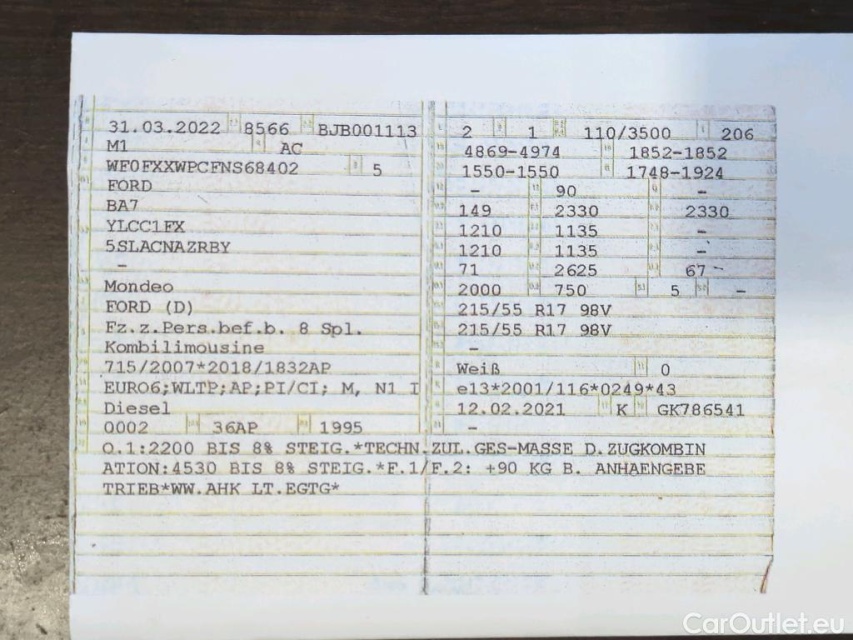 31.03.2022 8566 BJB001113
M1 AC
WF0FXXWPCFNS68402 5
FORD
BA7
YLCC1FX
5SLACNAZRBY
–
Mondeo
FORD (D)
Fz.z.Pers.bef.b. 8 Spl.
Kombilimousine
715/2007*2018/1832AP
EURO6;WLTP;AP;PI/CI; M, N1 I
Diesel
0002 36AP 1995
2 1 110/3500 206
4869-4974 1852-1852
1550-1550 1748-1924
– 90 –
149 2330 2330
1210 1135 –
1210 1135 –
71 2625 67
2000 750 5 –
215/55 R17 98V
215/55 R17 98V
–
Weiß 0
e13*2001/116*0249*43
12.02.2021 K GK786541
–
O.1:2200 BIS 8% STEIG.*TECHN.ZUL.GES-MASSE D.ZUGKOMBIN
ATION:4530 BIS 8% STEIG.*F.1/F.2: +90 KG B. ANHAENGEBE
TRIEB*WW.AHK LT.EGTG*
CarOutlet.eu